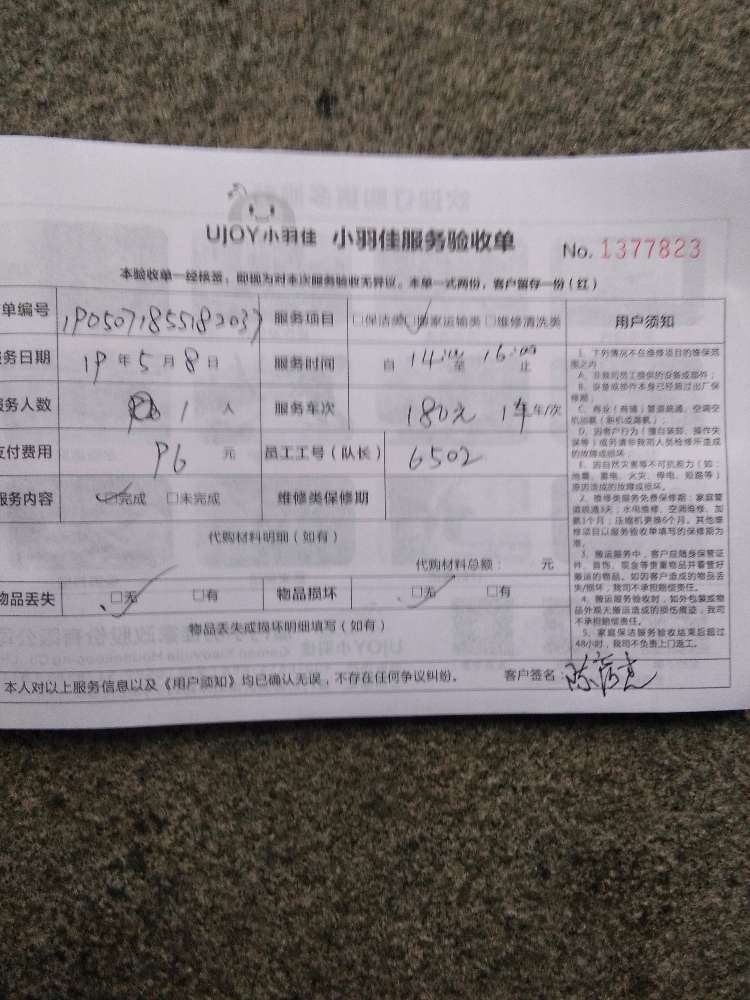 UJOY小羽佳 小羽佳服务验收单 No. 1377823
本验收单一经核签，即视为对本次服务验收无异议。本单一式两份，客户留存一份（红）
单编号 190507185518203 服务项目 □保洁类 □搬家运输类 □维修清洗类
务日期 19 年 5 月 8 日 服务时间 自 14:00 至 16:00 止
服务人数 1 人 服务车次 180元 1车 车/次
支付费用 96 元 员工工号（队长） 6502
服务内容 □完成 □未完成 维修类保修期
代购材料明细（如有）
代购材料总额： 元
物品丢失 □无 □有 物品损坏 □无 □有
物品丢失或损坏明细填写（如有）
本人对以上服务信息以及《用户须知》均已确认无误，不存在任何争议纠纷。 客户签名：
用户须知
1、下列情况不在维修项目的维保范
围之内
A、非我司员工提供的设备或部件；
B、设备或部件本身已经超过出厂保
修期；
C、商业（商铺）管道疏通、空调空
机加氨（新机或漏氨）；
D、因客户行为（擅自装卸、操作失
误等）或另请非我司人员检修所造成
的故障或损坏；
E、因自然灾害等不可抗拒力（如：
地震、雷电、火灾、停电、短路等）
原因造成的故障或损坏。
2、维修类服务免费保修期：家庭管
道疏通3天；水电维修、空调维修、加
氨1个月；压缩机更换6个月。其他维
修项目以服务验收单填写的保修期为
准。
3、搬运服务中，客户应随身保管证
件、首饰、现金等贵重物品并看管好
搬运的物品。如因客户造成的物品丢
失/损坏，我司不承担赔偿责任。
4、搬运服务验收时，如外包装或物
品外观无搬运造成的损伤痕迹，我司
不承担赔偿责任。
5、家庭保洁服务验收结束后超过
48小时，我司不负责上门返工。